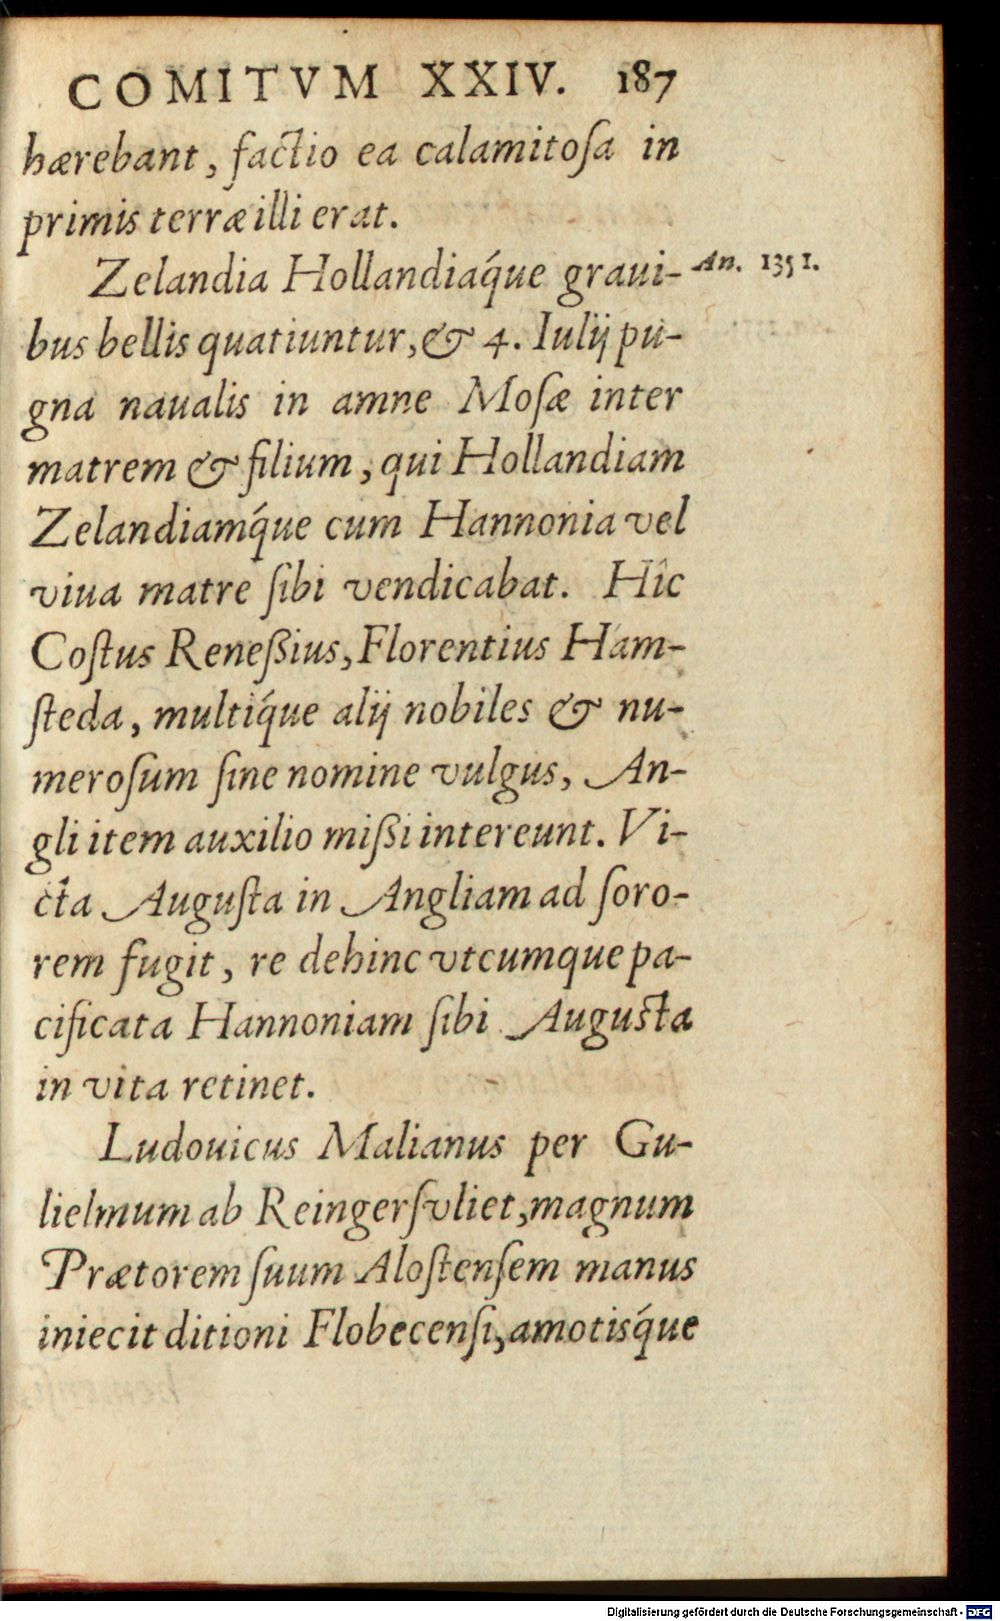 COMITVM XXIV. 187
hærebant, factio ea calamitoſa in
primis terræ illi erat.
Zelandia Hollandiaq́ue graui- An. 1351.
bus bellis quatiuntur, & 4. Iulij pu-
gna naualis in amne Moſæ inter
matrem & filium, qui Hollandiam
Zelandiamq́ue cum Hannonia vel
viua matre ſibi vendicabat. Hîc
Coſtus Reneßius, Florentius Ham-
ſteda, multiq́ue alij nobiles & nu-
meroſum ſine nomine vulgus, An-
gli item auxilio mißi intereunt. Vi-
cta Auguſta in Angliam ad ſoro-
rem fugit, re dehinc vtcumque pa-
cificata Hannoniam ſibi Auguſta
in vita retinet.
Ludouicus Malianus per Gu-
lielmum ab Reingerſvliet, magnum
Prætorem ſuum Aloſtenſem manus
iniecit ditioni Flobecenſi, amotisq́ue
Digitalisierung gefördert durch die Deutsche Forschungsgemeinschaft - DFG